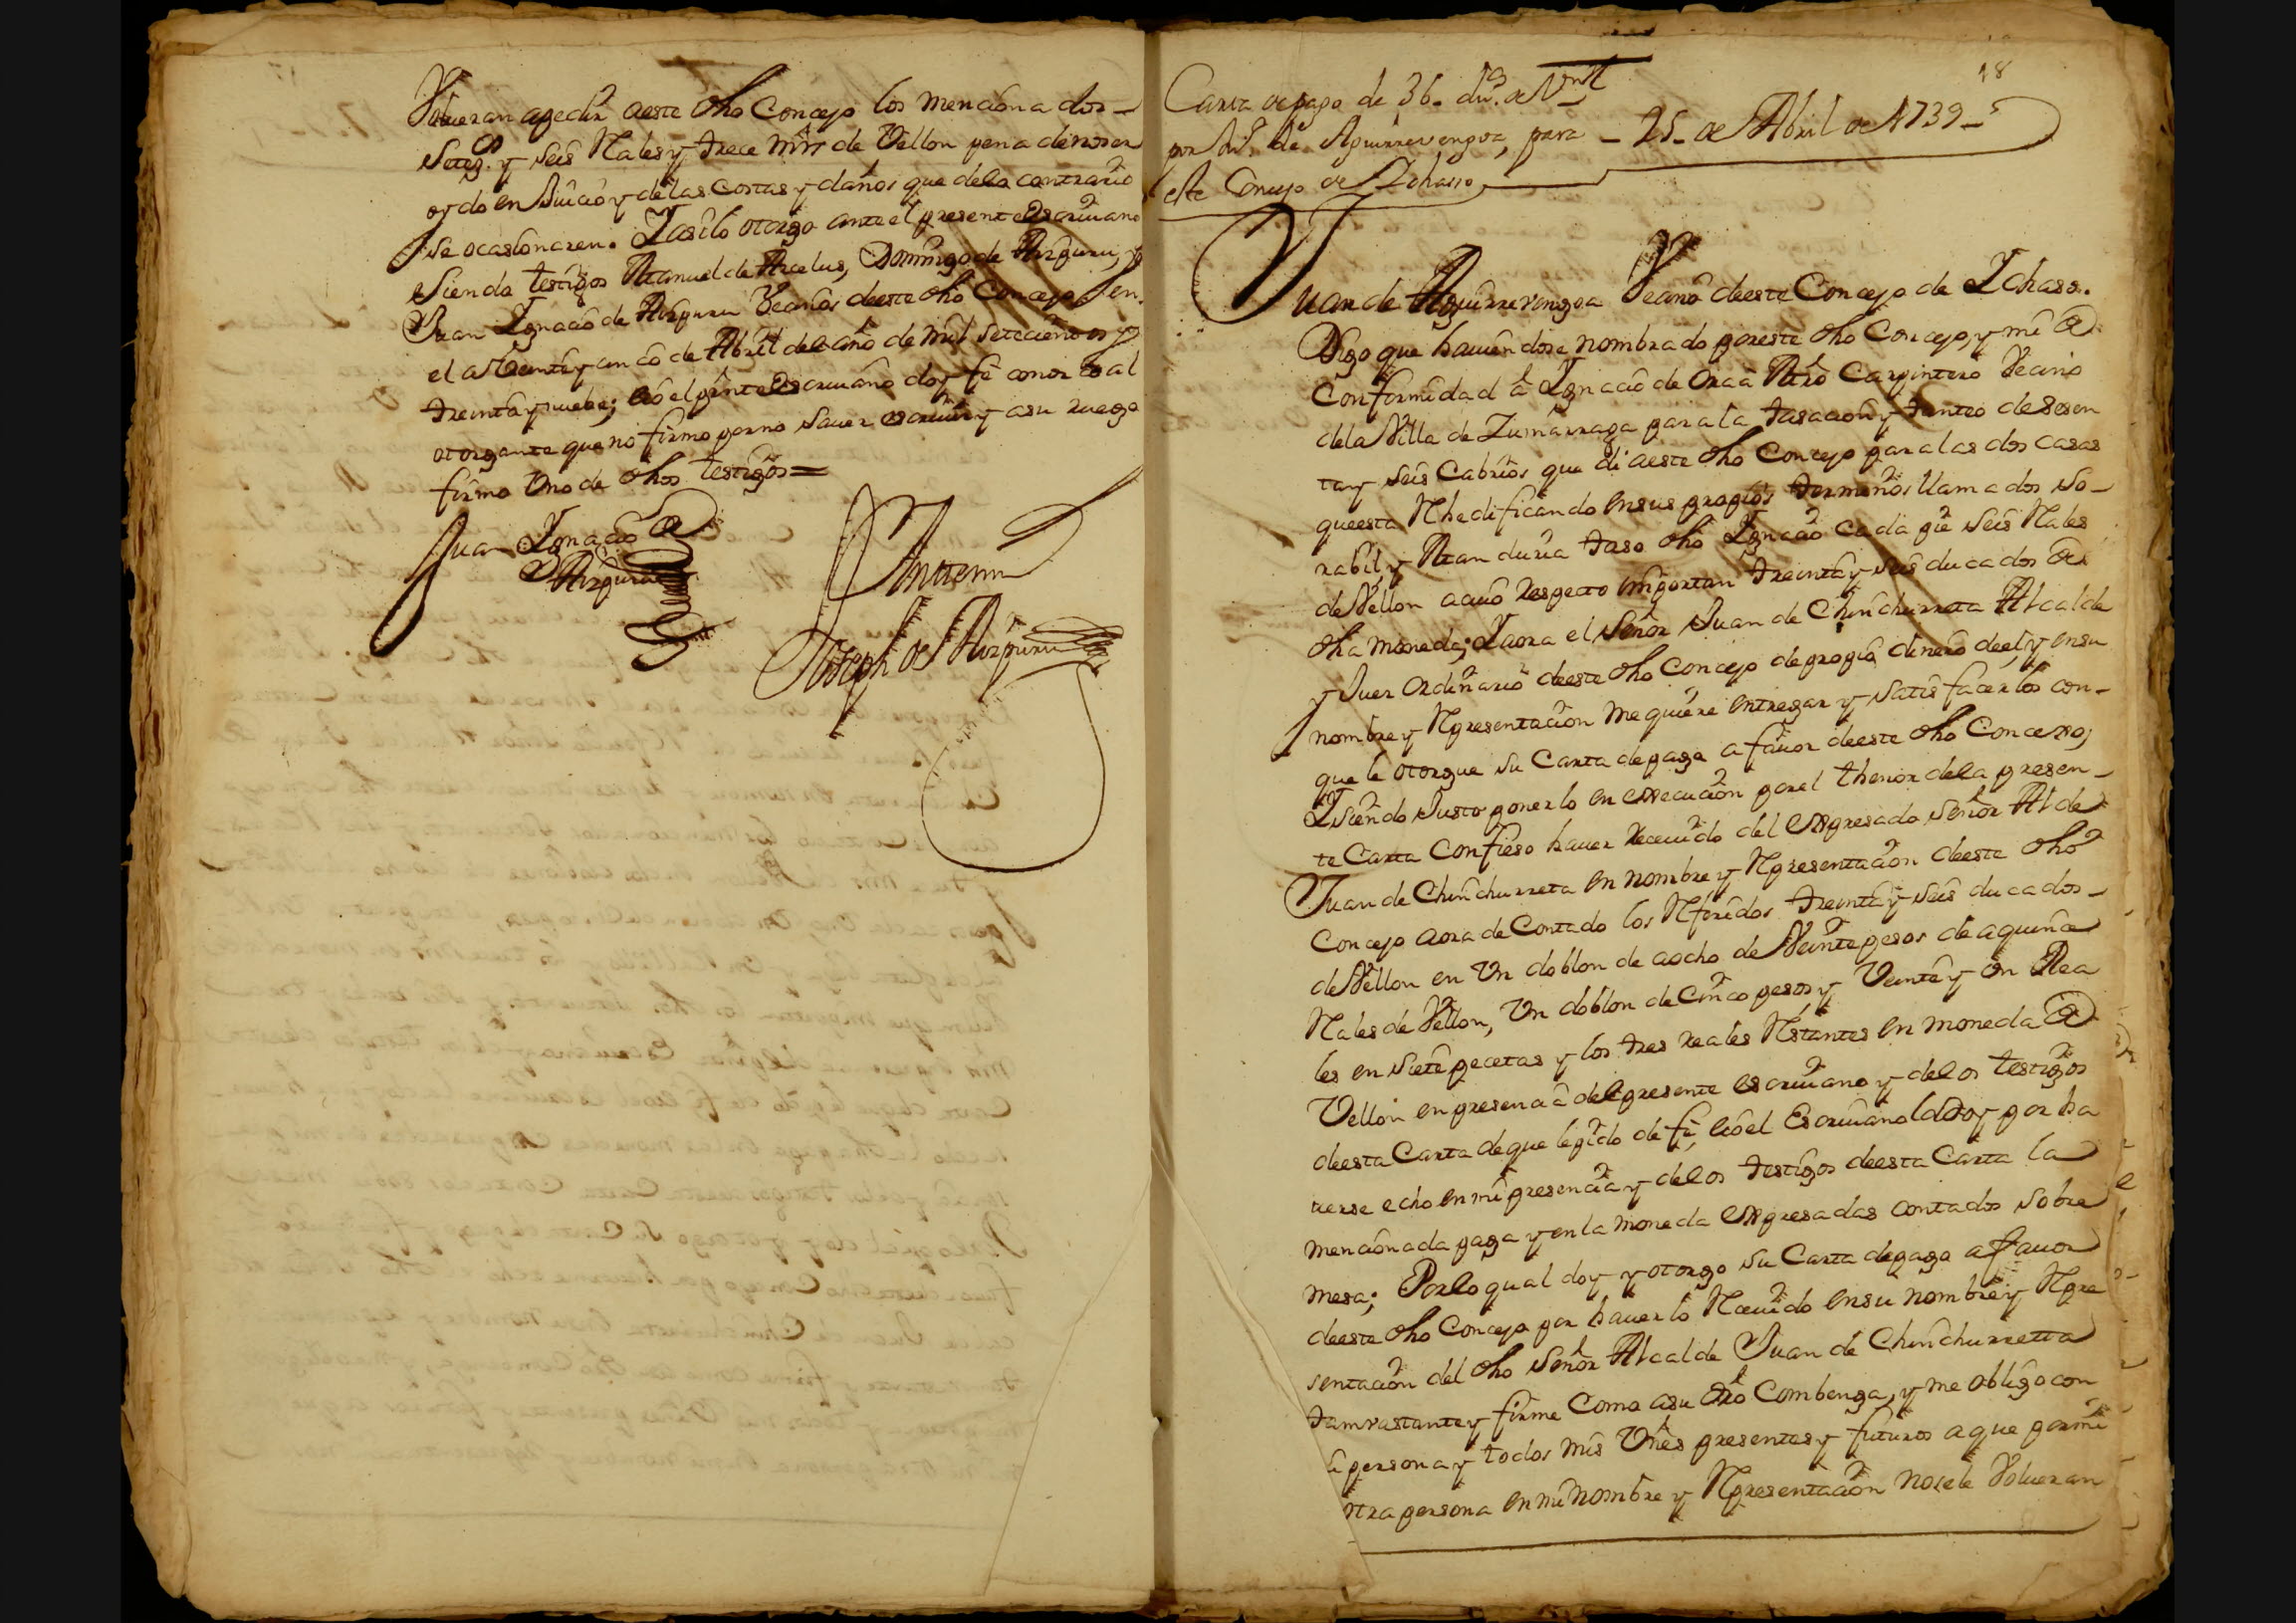 Volueran apedir aeste dho Concejo los menciona dos-
Seteg.s y seis Rales y trece mrs de Vellon pena denoser
oydo en Juicio y delas Costas y daños que delo contrario
se ocasionaren. Y asilo otorgo ante el presente Escriuano
Siendo testigos Manuel de Arcelus, Domingo de Aizpuru, y
Juan Ignacio de Aizpuru Vecinos deeste dho Concejo, en
el a Veinte y cinco de Abril del año de mil setecientos y
treinta y nuebe; e io el prnte Escriuano doy fe conozco al
otorgante que no firmo porno sauer escriuir y asu ruego
firmo Vno de dhos testigos=
Juan Ignacio de
Aizpuru
Antemi
Joseph de Aizpuru
18
Carta de pago de 36. dus. de Vn
por Jun de Aguirrevengoa, para - 25 de Abril de 1739-
este Concejo de Ichasso
Juan de Aguirrevengoa Vecino deeste Concejo de Ichaso.
Digo que hauiendose nombrado poreste dho Concejo, y mi de
Conformidad à Ignacio de Oraa Mro Carpintero Vecino
dela Villa de Zumarraga para la tasacion y tanteo de sesen
ta y seis Cabrios que di aeste dho Concejo para las dos casas
queesta Rhedificando en sus propios terminos llamados So-
rabil y Mandiuia taso dho Ignacio cada pie seis Rales
de Vellon acuio respecto importan treinta y seis ducados de
dha moneda; Y aora el Señor Juan de Chinchurreta Alcalde
y Juez Ordinario deeste dho Concejo de propio dinero deel, y ensu
nombre y Rpresentacion me quiere entregar y satisfacerlos con-
que le otorgue su Carta de pago a fauor deeste dho Concexo;
Y siendo Justo ponerlo en execucion porel thenor dela presen-
te Carta Confieso hauer Receuido del expresado Señor Alcde
Juan de Chinchurreta en nombre y Rpresentacion deeste dho
Concejo aora de Contado los Rferidos treinta y seis ducados-
de Vellon en Vn doblon de aocho de Veinte pesos de aquince
Rales de Vellon, Vn doblon de Cinco pesos y Veinte y vn Rea
les en siete pecetas y los tres reales Rstantes en moneda de
Vellon en presencia del presente escriuano y delos testigos
deesta Carta deque le pido de fe, e io el Escriuano la doy por ha
uerse echo en mi presencia y delos testigos deesta Carta la
mencionada paga y en la moneda expresadas contados sobre
mesa; Porlo qual doy y otorgo su Carta de pago a fauor
deeste dho Concejo por hauerlo Receuido ensu nombre y Rpre
sentacion del dho Señor Alcalde Juan de Chinchurretta
tamvastante y firme Como asu dro Combenga, y me obligo con
i persona y todos mis Vnes presentes y futuros a que por mi
otra persona en mi nombre y Rpresentacion nosele Volueran